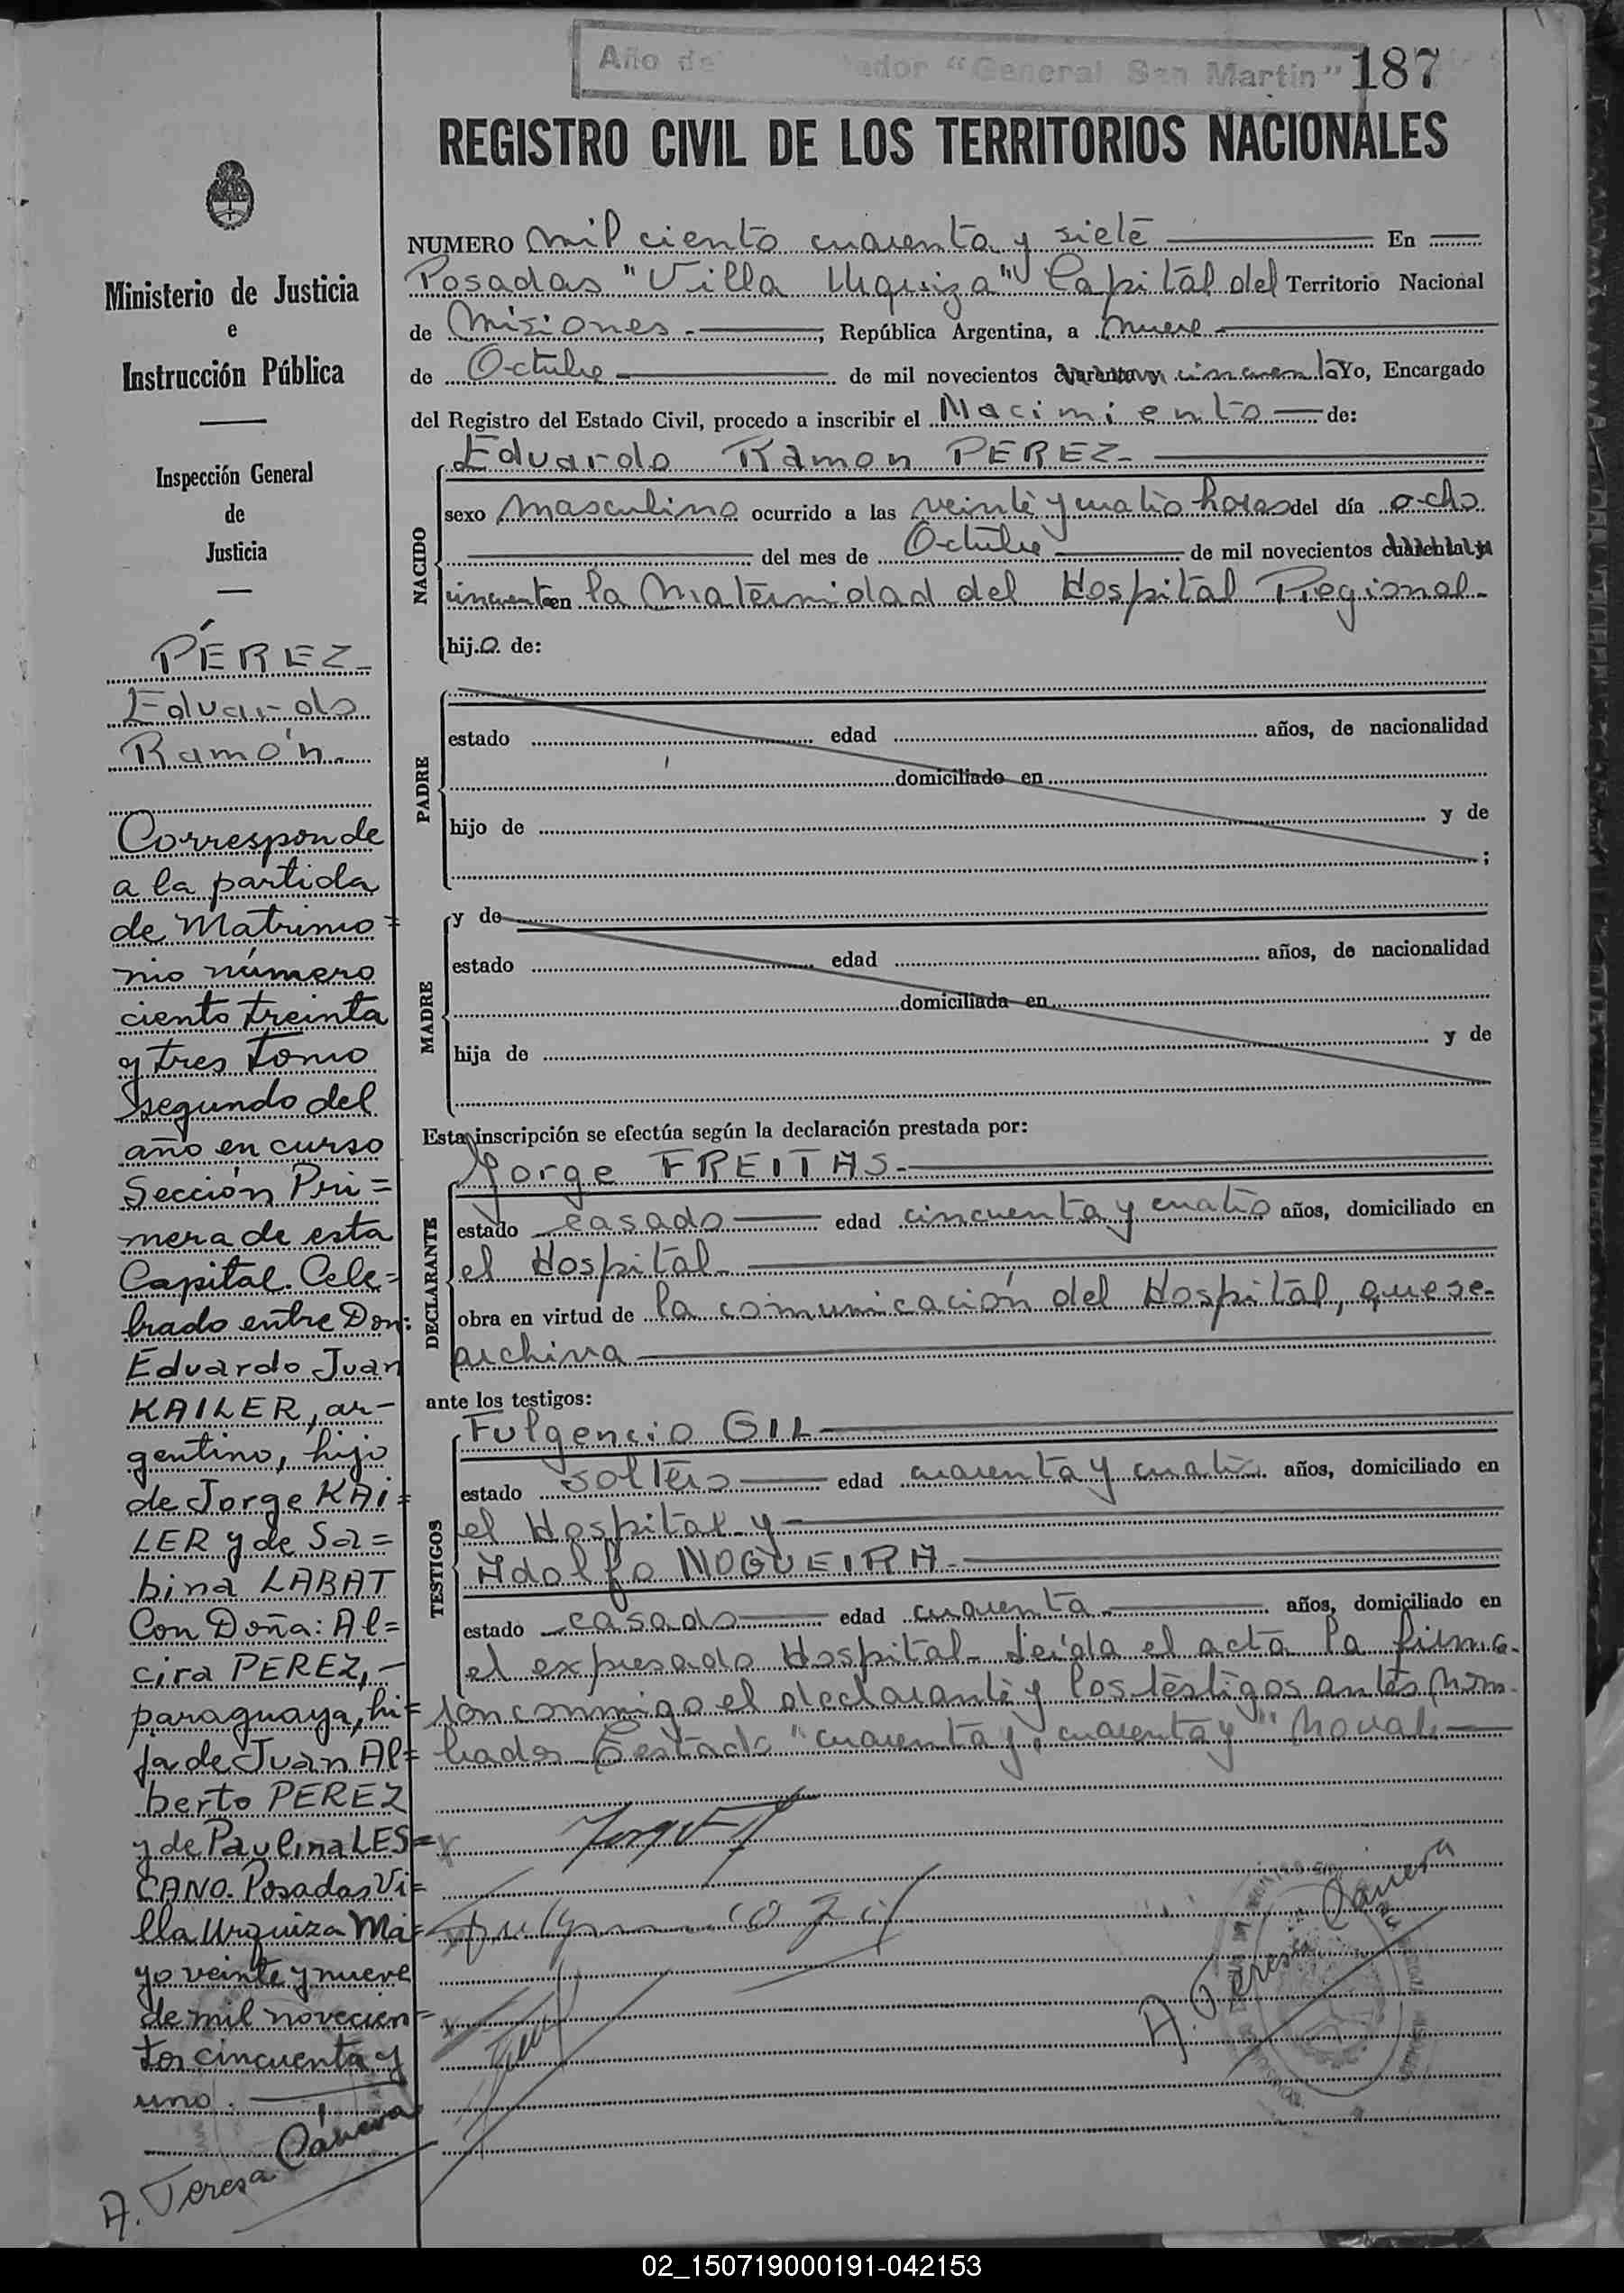 Año de ador "General San Martin" 187
REGISTRO CIVIL DE LOS TERRITORIOS NACIONALES
Ministerio de Justicia
e
Instrucción Pública
Inspección General
de
Justicia
PÉREZ-
Eduardo
Ramón
Corresponde
a la partida
de Matrimo=
nio número
ciento treinta
y tres tomo
segundo del
año en curso
Sección Pri=
mera de esta
Capital. Cele=
brado entre Don:
Eduardo Juan
KAILER, ar-
gentino, hijo
de Jorge KAI=
LER y de Sa=
bina LABAT
Con Doña: Al=
cira PEREZ,-
paraguaya, hi=
ja de Juan Al=
berto PEREZ
y de Paulina LES=
CANO. Posadas Vi=
lla Urquiza Ma=
yo veinte y nueve
de mil novecien=
tos cincuenta y
uno.
A. Teresa Cáneva
NUMERO mil ciento cuarenta y siete En
Posadas "Villa Urquiza" Capital del Territorio Nacional
de Misiones.- , República Argentina, a nueve
de Octubre de mil novecientos cuarenta y cincuenta Yo, Encargado
del Registro del Estado Civil, procedo a inscribir el Nacimiento de:
NACIDO
Eduardo Ramon PEREZ-
sexo masculino ocurrido a las veinte y cuatro horas del día ocho
del mes de Octubre de mil novecientos cuarenta y
cincuenta en la Maternidad del Hospital Regional-
hij.o. de:
PADRE
estado edad años, de nacionalidad
domiciliado en
hijo de y de
;
MADRE
y de
estado edad años, de nacionalidad
domiciliada en
hija de y de
Esta inscripción se efectúa según la declaración prestada por:
DECLARANTE
Jorge FREITAS-
estado casado edad cincuenta y cuatro años, domiciliado en
el Hospital-
obra en virtud de la comunicación del Hospital, que se-
archiva
ante los testigos:
TESTIGOS
Fulgencio GIL
estado soltero edad cuarenta y cuatro años, domiciliado en
el Hospital y
Adolfo NOGUEIRA-
estado casado edad cuarenta- años, domiciliado en
el expresado Hospital- Leída el acta la firma-
ron conmigo el declarante y los testigos antes nom-
brados Testado "cuarenta y, cuarenta y" No vale
A. Teresa Cáneva
02_150719000191-042153